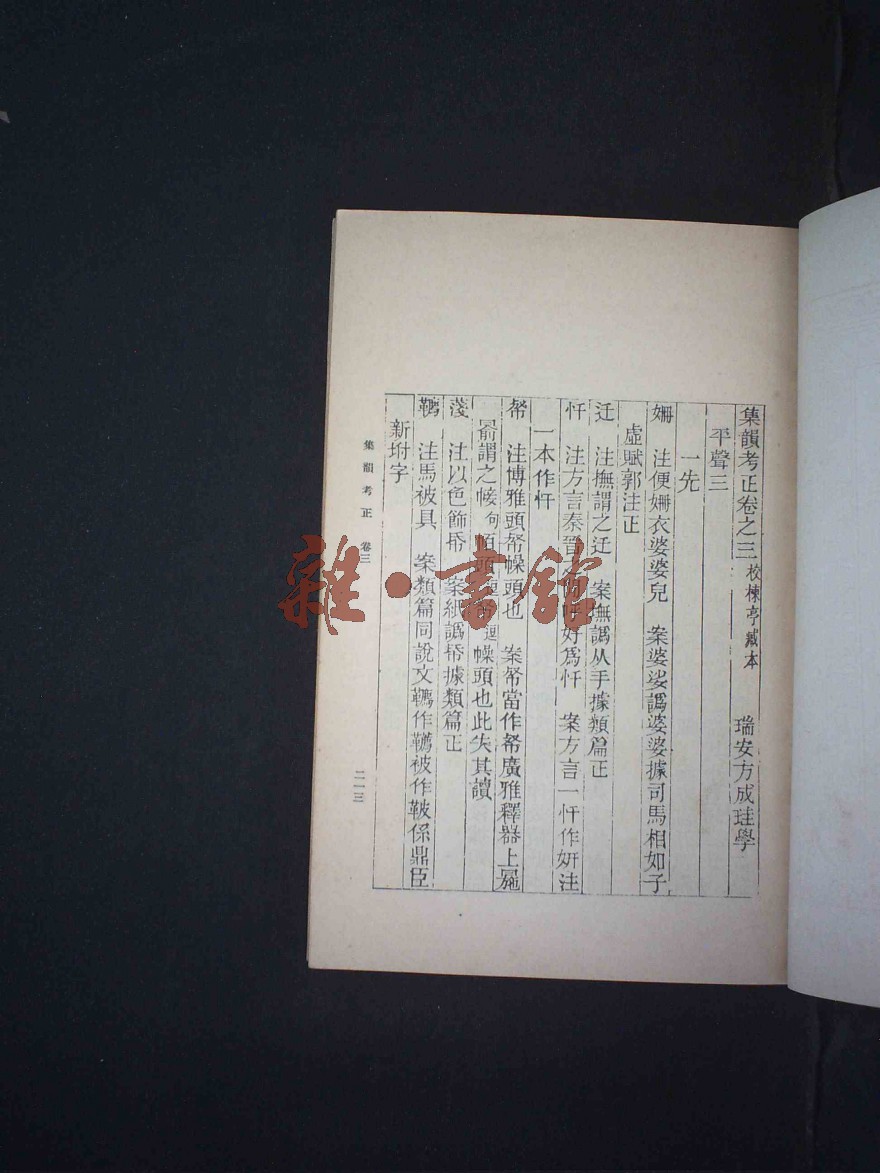 集韻考正卷之三 校楝亭藏本 瑞安方成珪學
平聲三
一先
姍 注便姍衣婆婆皃 案婆娑譌婆婆據司馬相如子
虛賦郭注正
迁 注撫謂之迁 案撫譌从手據類篇正
忓 注方言秦晉之閒呼好為忓 案方言一忓作妍注
一本作忓
帤 注博雅頭帤幧頭也 案帤當作帤廣雅釋器上
謂之㡋句帞頭 幧頭也此失其讀
注以色飾帋 案紙譌帋據類篇正
韉 注馬被具 案類篇同說文韉作韉被作鞁係鼎臣
新坿字
集韻考正 卷三
二一三
雜·書館